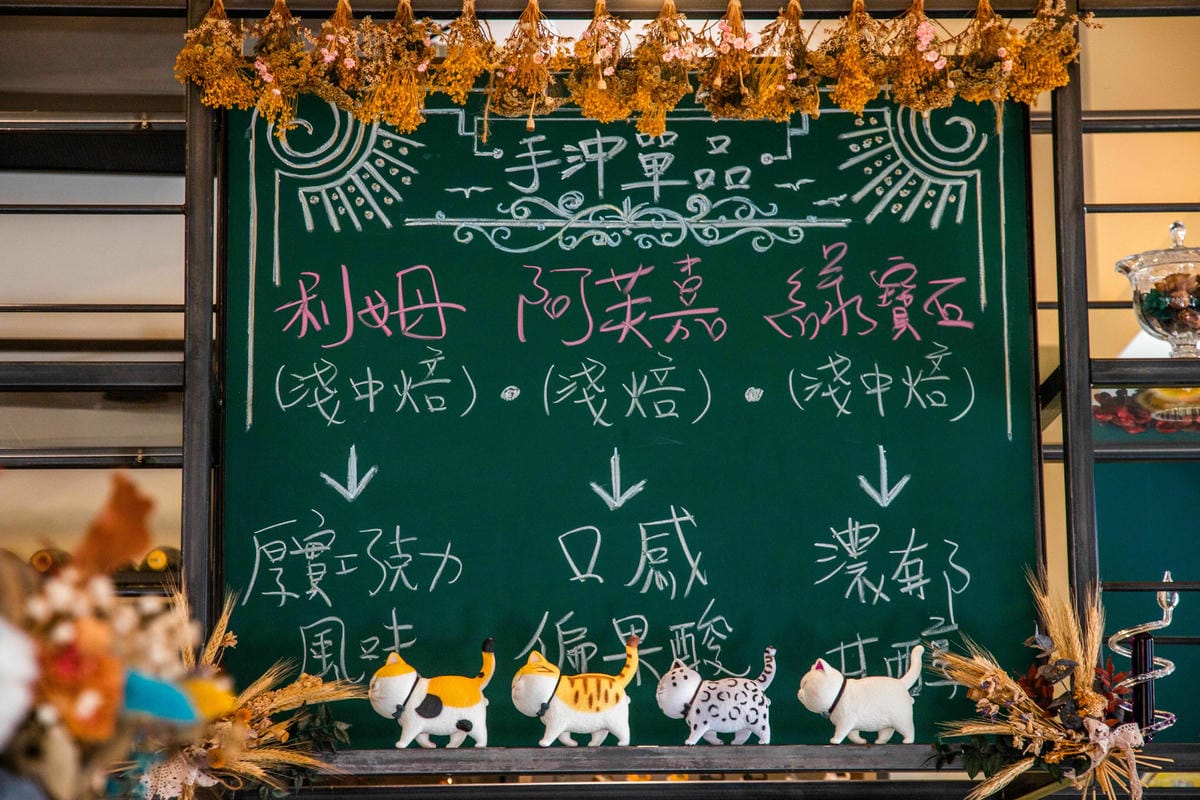 手沖單品
利姆 阿芙嘉 綠寶石
(淺中焙)•(淺焙)•(淺中焙)
↓ ↓ ↓
厚實巧克力 口感 濃郁
風味 偏果酸